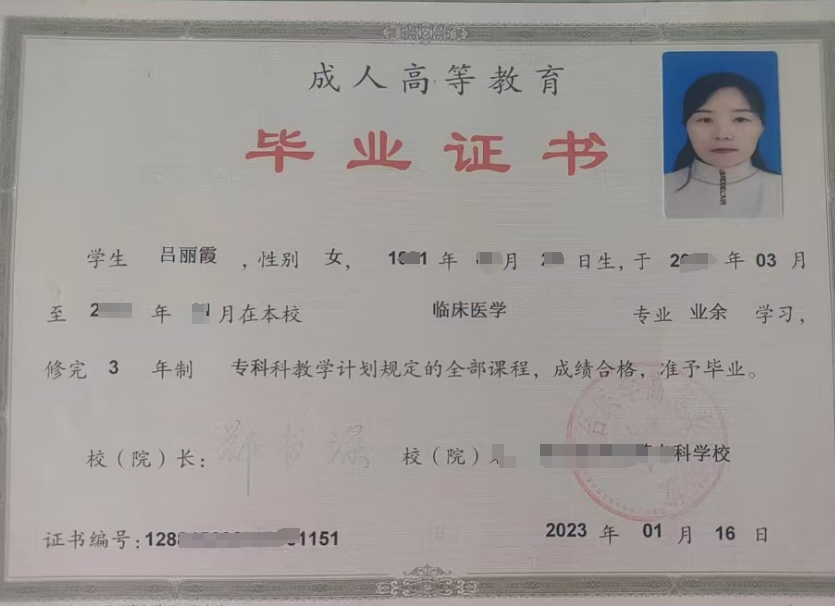 成人高等教育
毕业证书
学生 吕丽霞 ，性别 女， 年 月 日生，于 年 03 月
至 年 月在本校 临床医学 专业 业余 学习，
修完 3 年制 专科科教学计划规定的全部课程，成绩合格，准予毕业。
校（院）长： 校（院） 科学校
证书编号：128 1151
2023 年 01 月 16 日